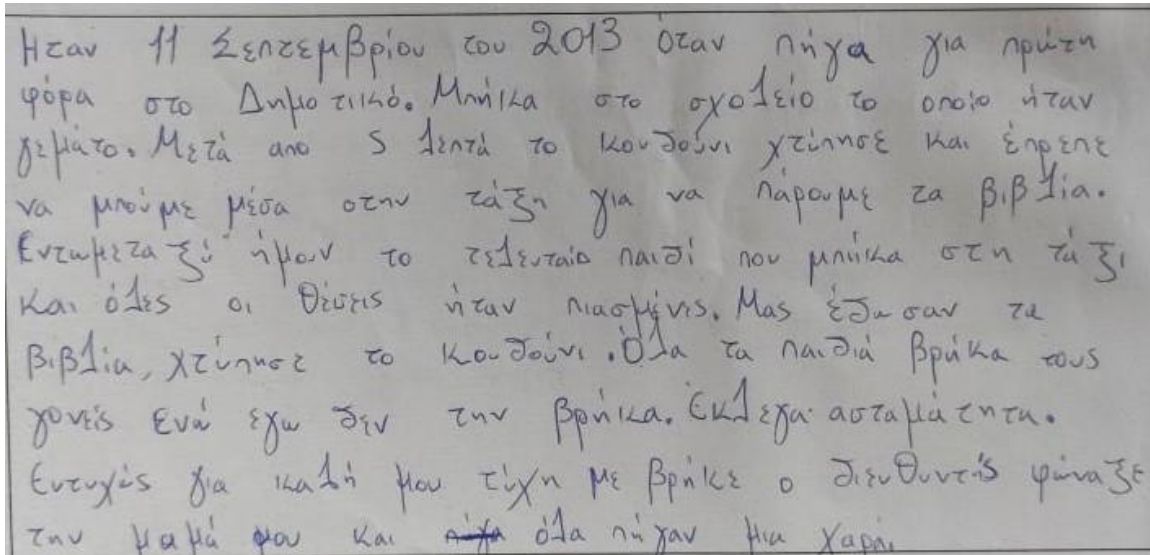 Ηταν 11 Σεπτεμβρίου του 2013 όταν πήγα για πρώτη
φόρα στο Δημοτικό. Μπήκα στο σχολείο το οποίο ήταν
γεμάτο. Μετά απο 5 λεπτά το κουδούνι χτύπησε και έπρεπε
να μπούμε μέσα στην τάξη για να πάρουμε τα βιβλία.
Εντωμεταξύ ήμουν το τελευταίο παιδί που μπήκα στη τάξι
και όλες οι θέσεις ήταν πιασμένις. Μας έδωσαν τα
βιβλία, χτύπησε το κουδούνι. Όλα τα παιδιά βρήκα τους
γονείς ενώ εγω δεν την βρήκα. Εκλεγα ασταμάτητα.
Ευτυχώς για καλή μου τύχη με βρήκε ο διευθυντής φώναξε
την μαμά μου και όλα πήγαν μια χαρά.